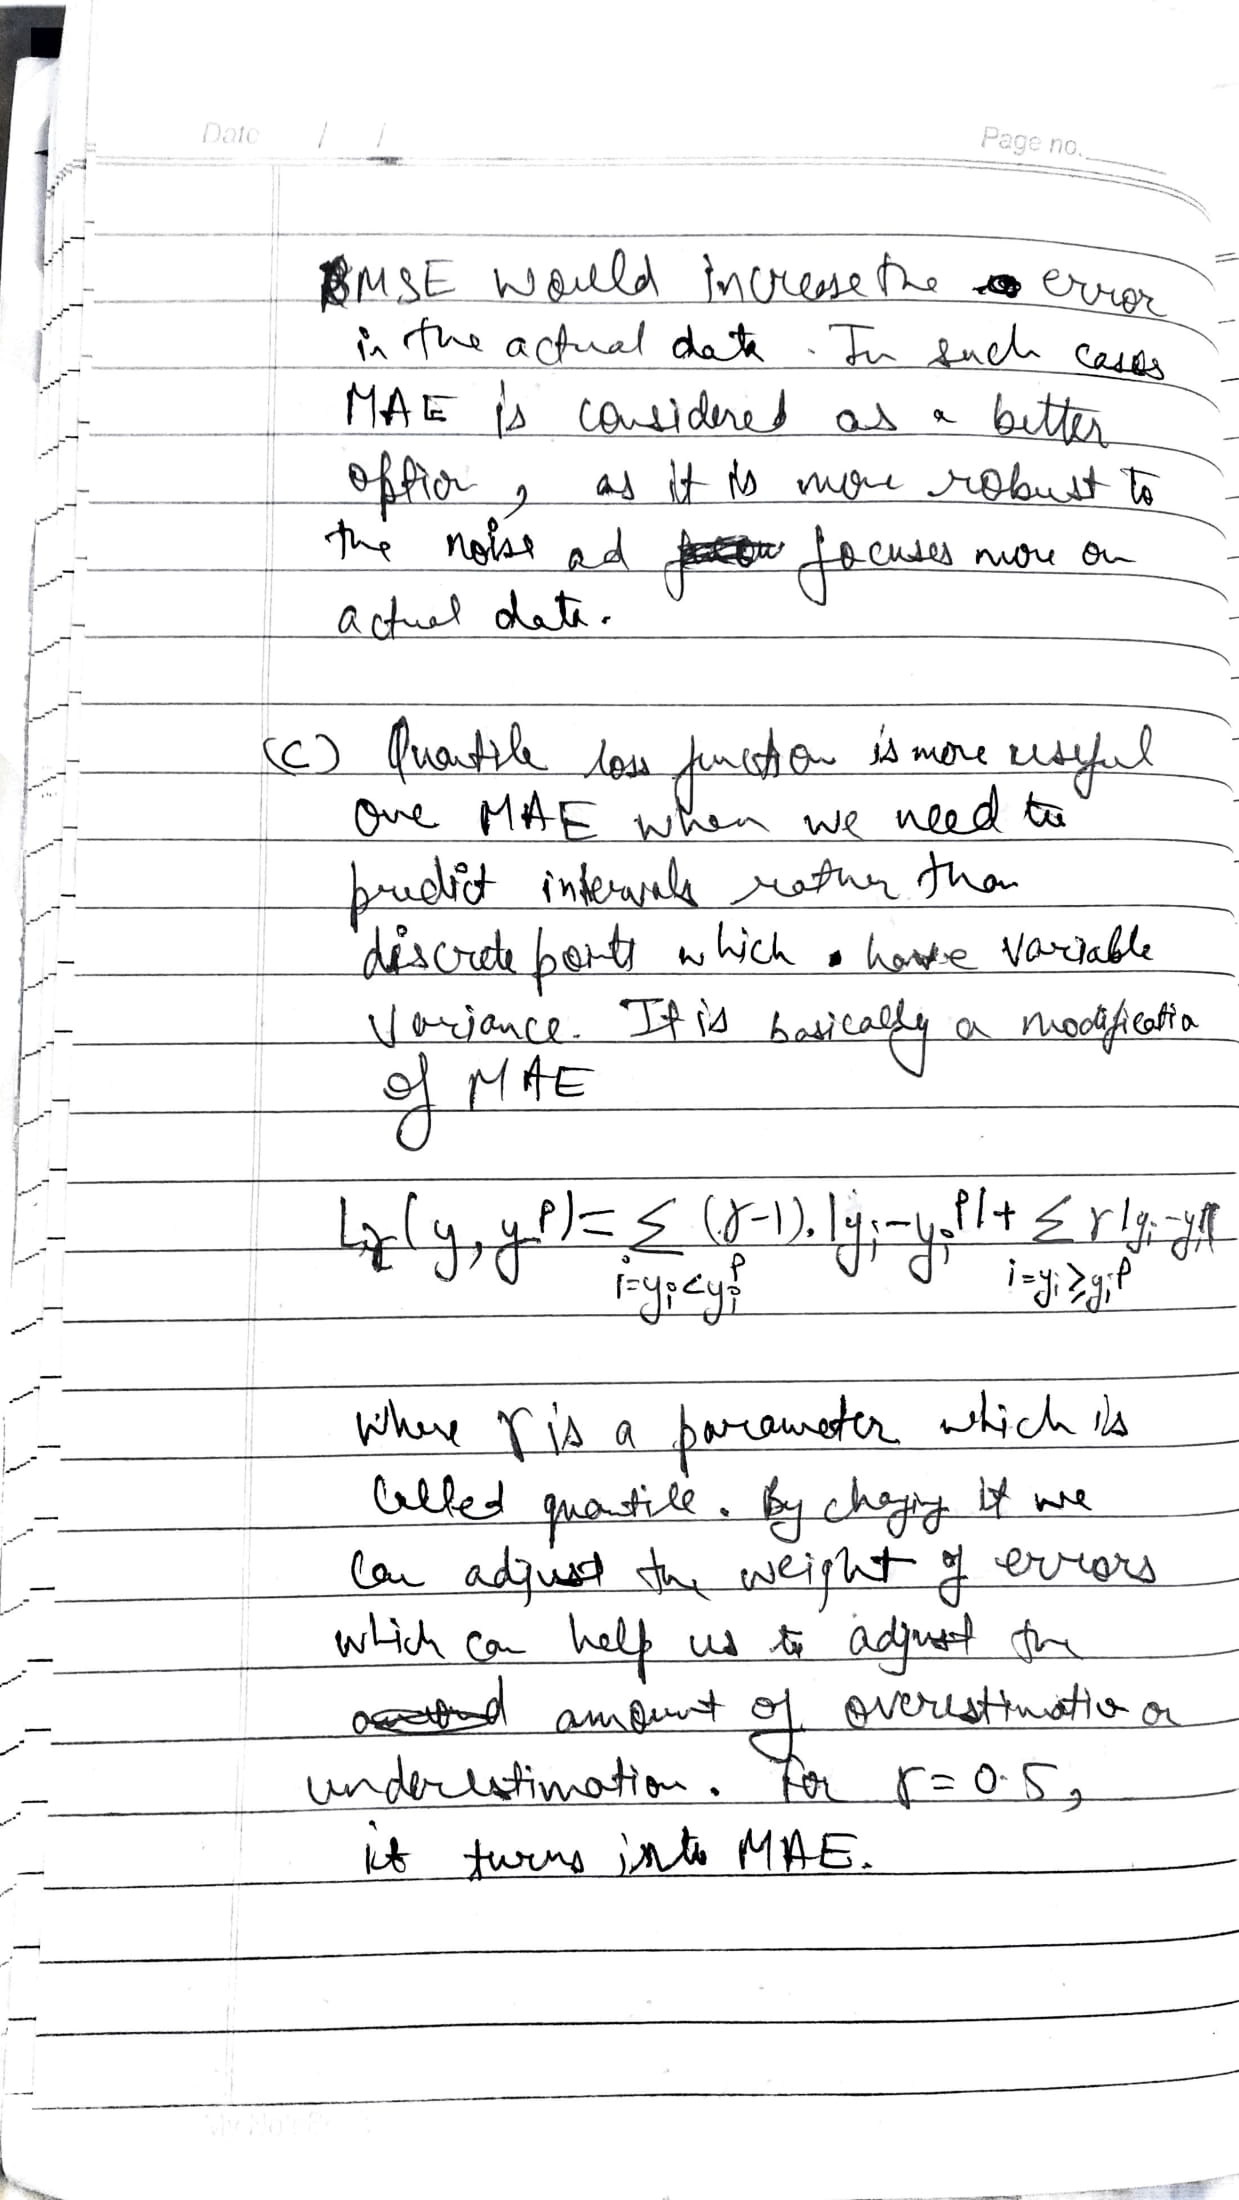 Date / /
Page no.
MSE would increase the error
in the actual data. In such cases
MAE is considered as a better
option, as it is more robust to
the noise ad focuses more on
actual data.
(C) Quantile loss function is more useful
one MAE when we need to
predict intervals rather than
discrete points which have variable
variance. It is basically a modificatio
of MAE
Lγ(y, y^p) = Σ (γ-1). |y_i - y_i^p| + Σ γ |y_i - y_i^p|
i=y_i<y_i^p i=y_i≥y_i^p
where γ is a parameter which is
called quantile. By chaging it we
can adjust the weight of errors
which can help us to adjust the
amount of overestimatio or
underestimation. For γ = 0.5,
it turns into MAE.